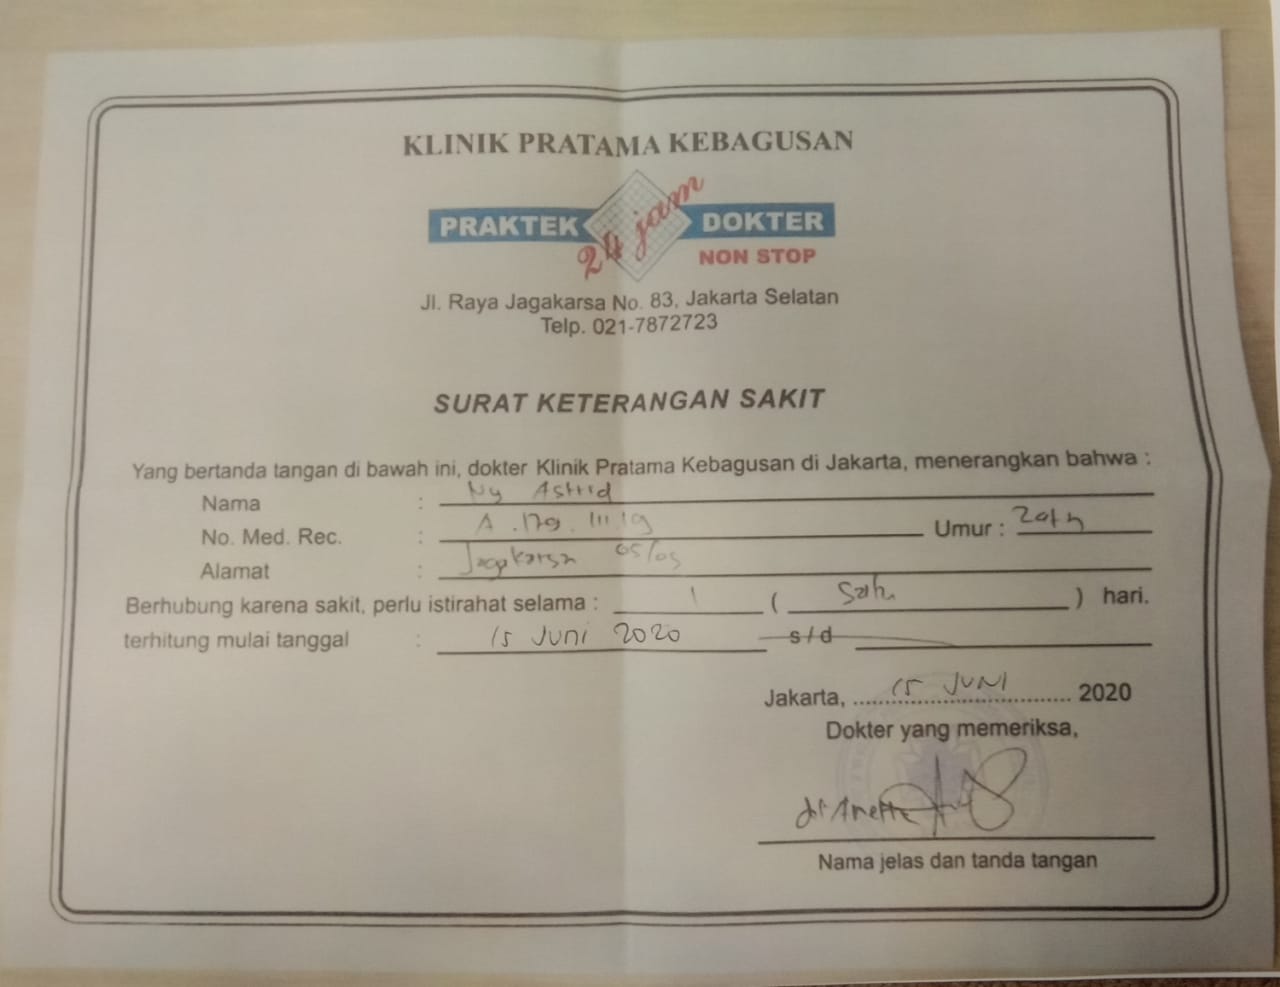 KLINIK PRATAMA KEBAGUSAN
PRAKTEK 24 jam DOKTER
NON STOP
Jl. Raya Jagakarsa No. 83, Jakarta Selatan
Telp. 021-7872723
SURAT KETERANGAN SAKIT
Yang bertanda tangan di bawah ini, dokter Klinik Pratama Kebagusan di Jakarta, menerangkan bahwa :
Nama : Ny Astrid
No. Med. Rec. : A .179. III.19 Umur :
Alamat : 05/05
Berhubung karena sakit, perlu istirahat selama : 1 ( Satu ) hari.
terhitung mulai tanggal : 15 JUNI 2020 s/d
Jakarta, 15 JUNI 2020
Dokter yang memeriksa,
dr Anette
Nama jelas dan tanda tangan